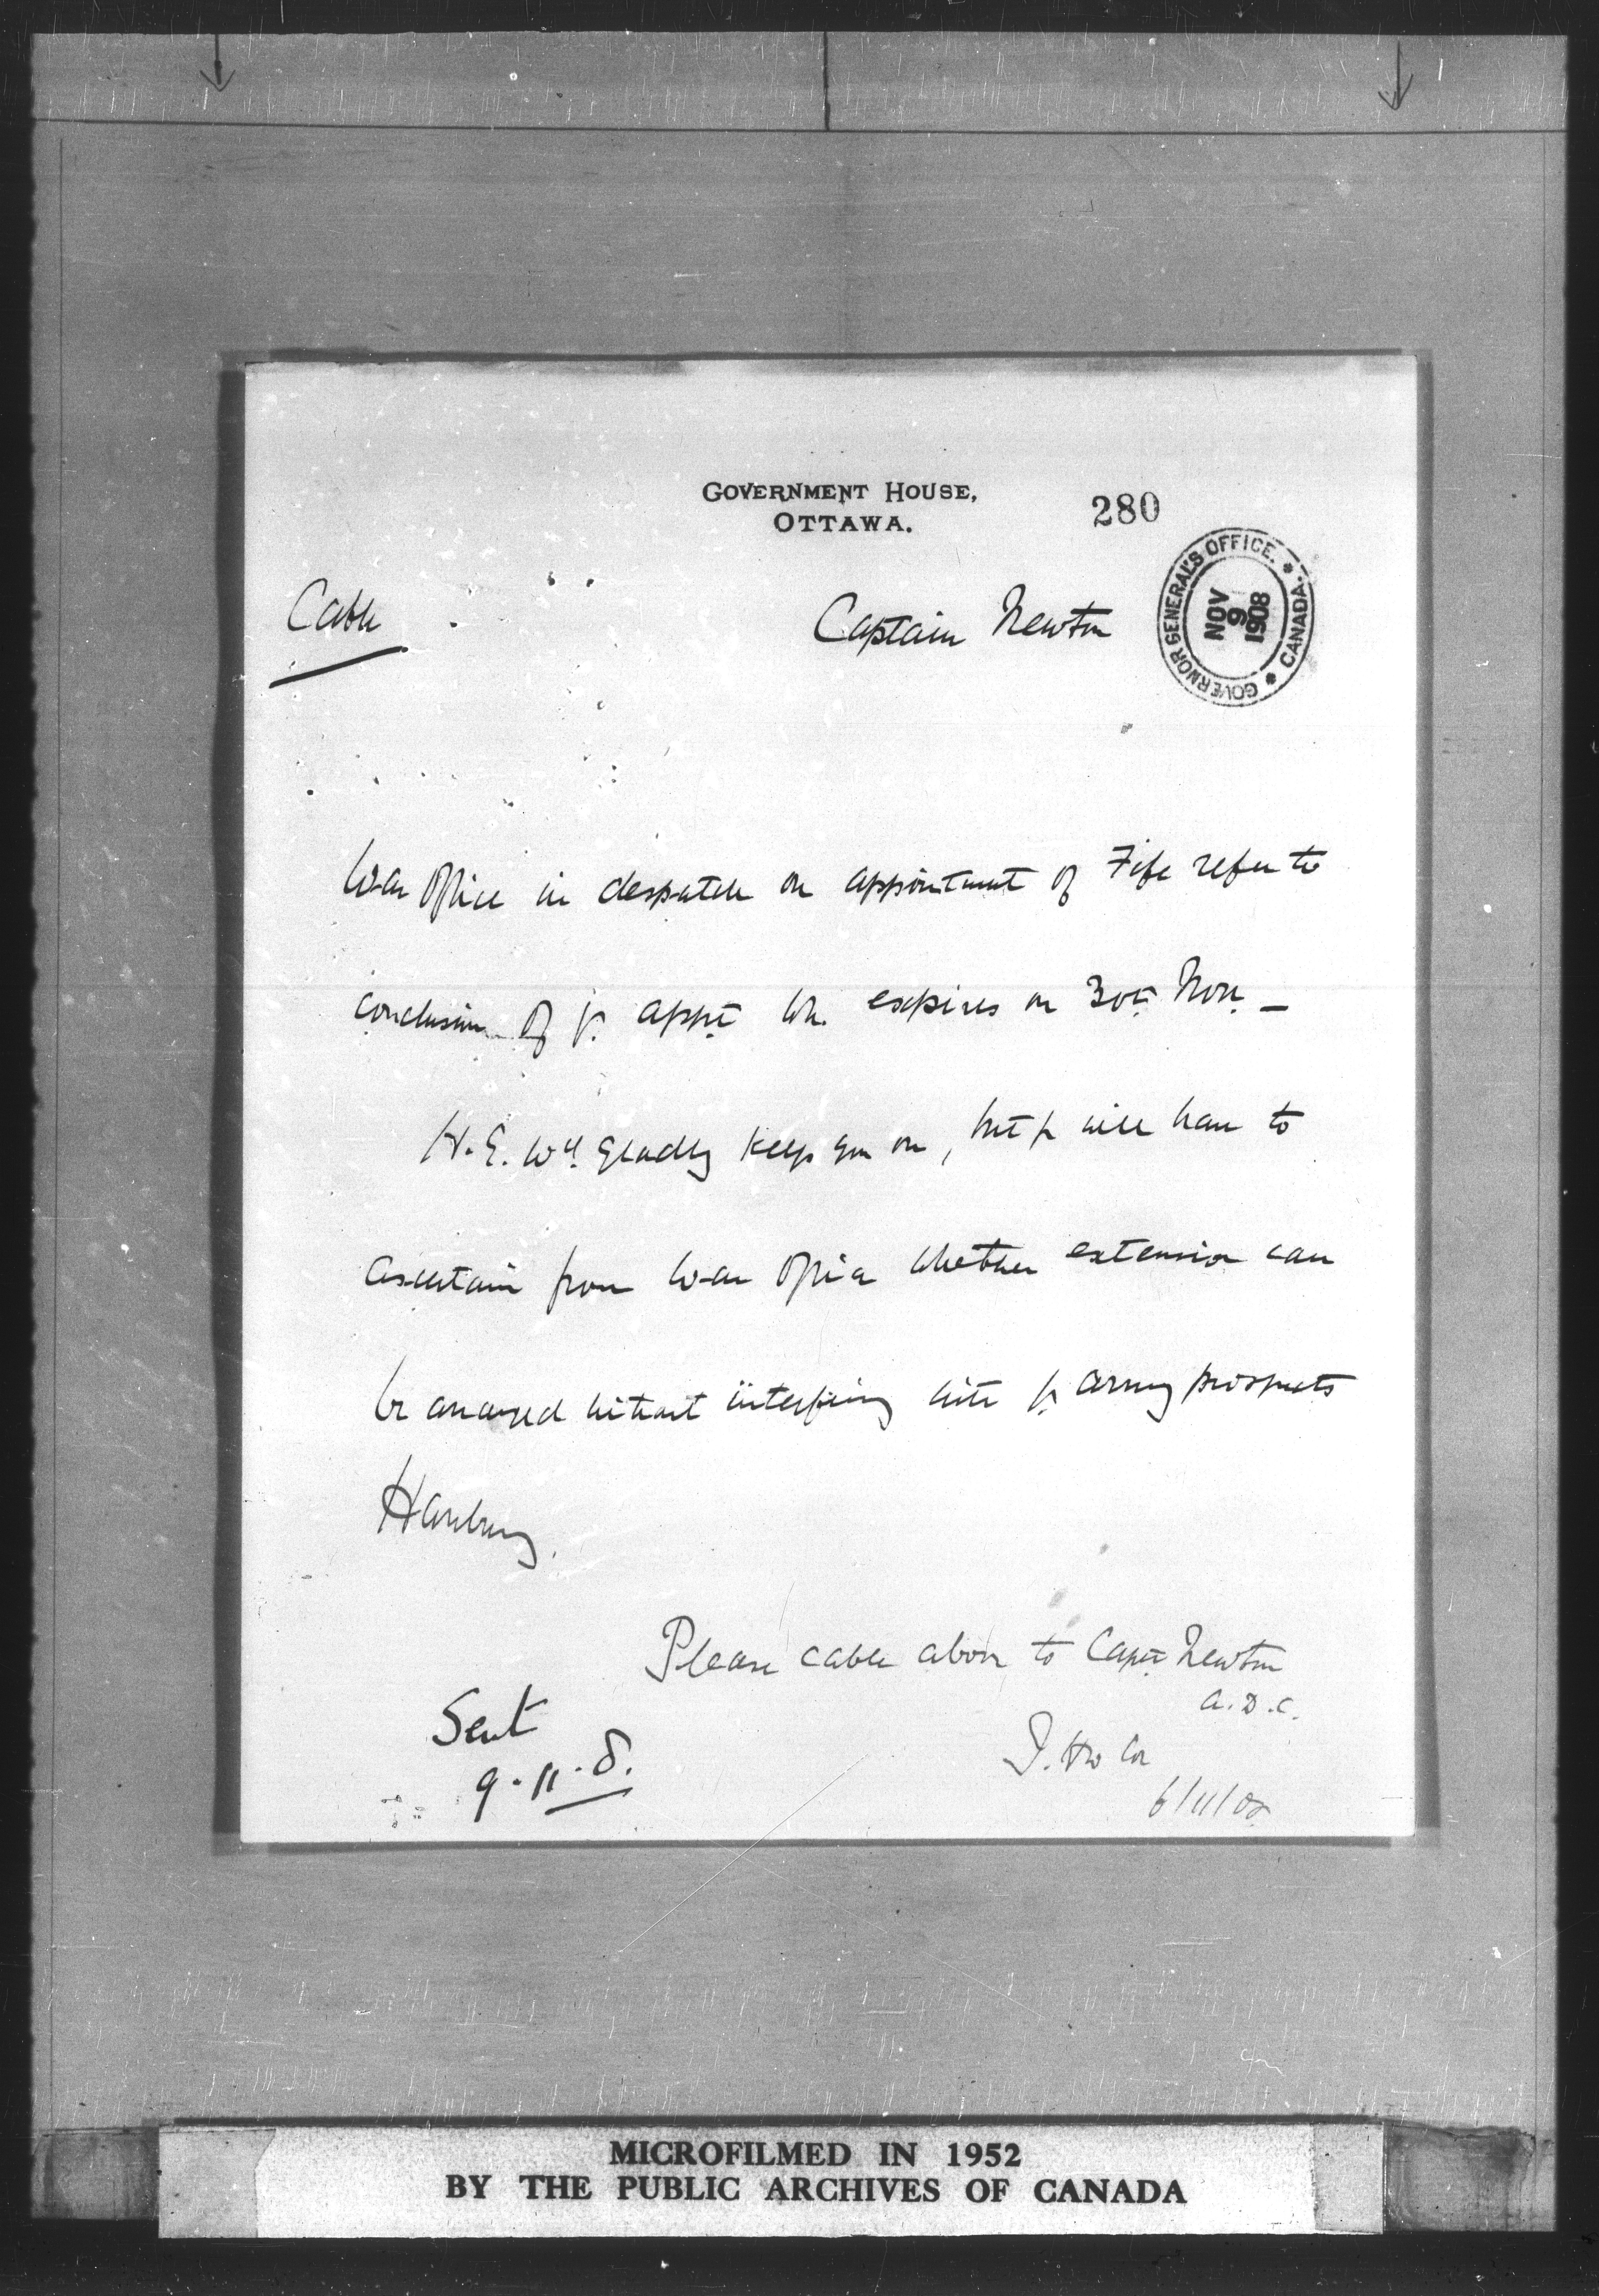 GOVERNMENT HOUSE,
OTTAWA.
280
GOVERNOR GENERAL'S OFFICE. * CANADA. *
NOV
9
1908
Cable
Captain Newton
War Office in despatch on appointment of Fife refer to
conclusion of yr. appt wh. expires on 30th Nov. –
H.E. wd. gladly keep you on, but yr will have to
ascertain from War Office whether extension can
be arranged without interfering with yr army prospects
Hanbury.
Please cable above to Capt Newton
A.D.C.
Sent
9.11.8.
6/11/08
MICROFILMED IN 1952
BY THE PUBLIC ARCHIVES OF CANADA